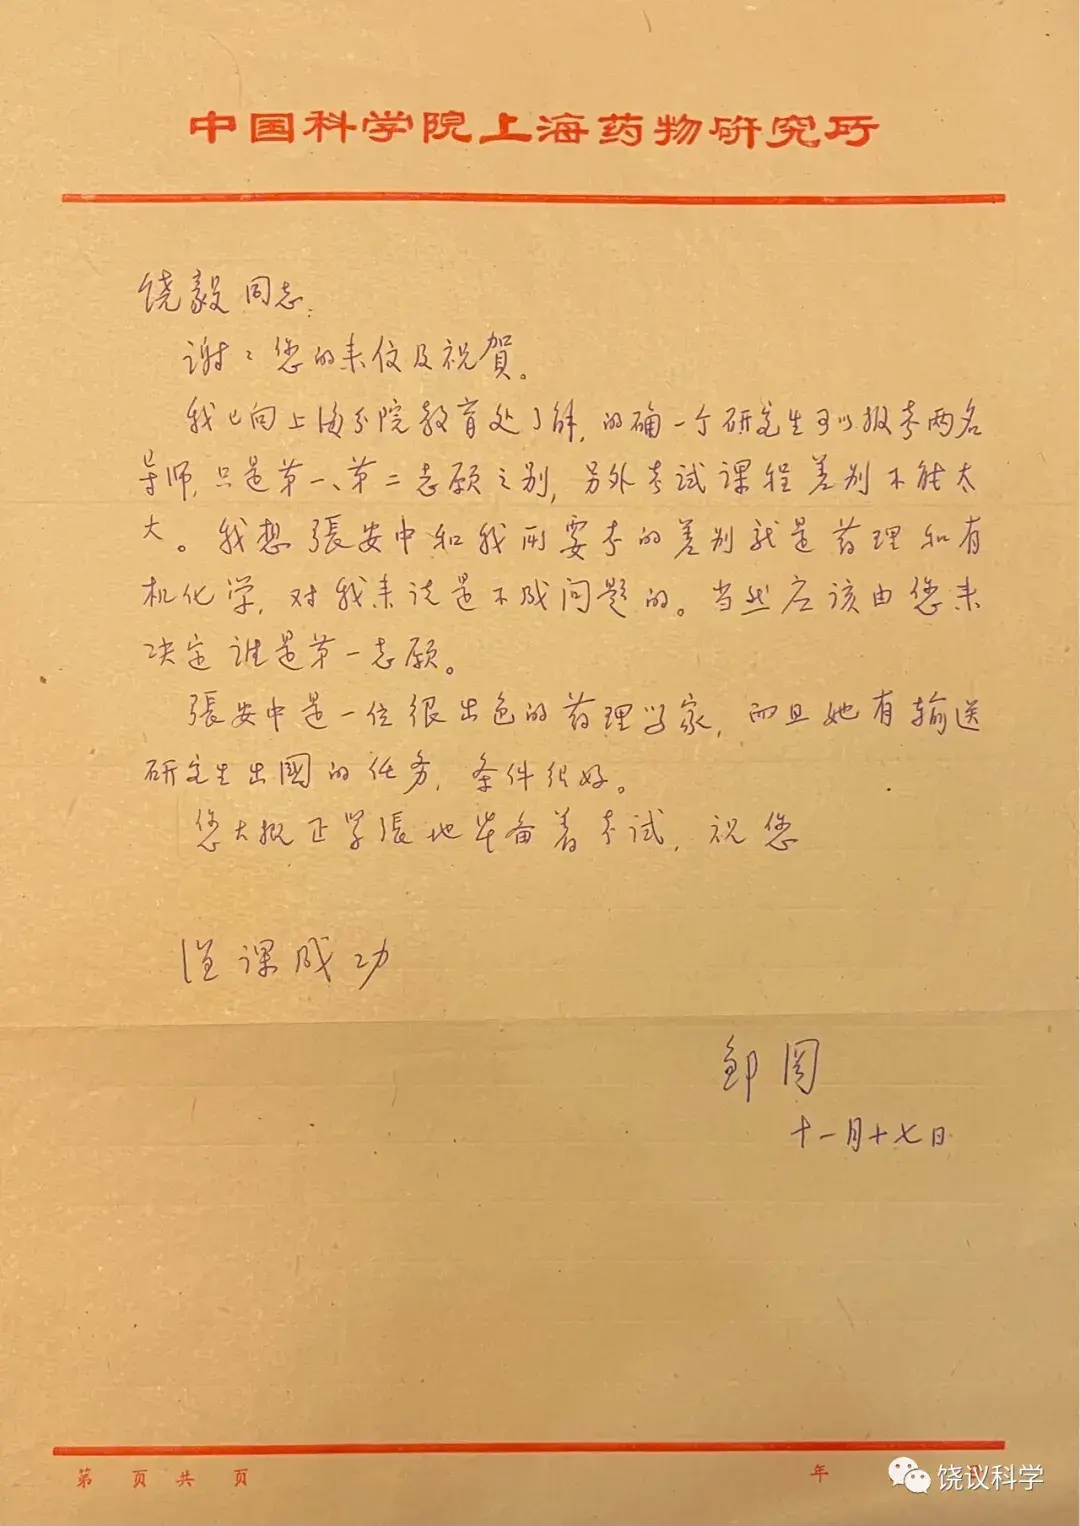 中国科学院上海药物研究所
饶毅同志:
谢谢您的来信及祝賀。
我已向上海分院教育处了解,的确一个研究生可以报考两名
导师,只是第一、第二志愿之别,另外考试课程差别不能太
大。我想張安中和我所要考的差别就是药理和有
机化学,对我来说是不成问题的。当然应该由您来
决定谁是第一志愿。
張安中是一位很出色的药理学家,而且她有输送
研究生出國的任务,条件很好。
您大概正紧張地准备着考试,祝您
课成功
邹冈
十一月十七日
第 页 共 页
年
饶议科学